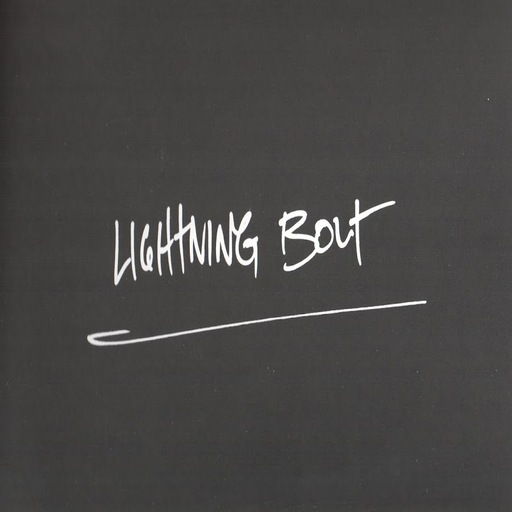 LIGHTNING BOLT